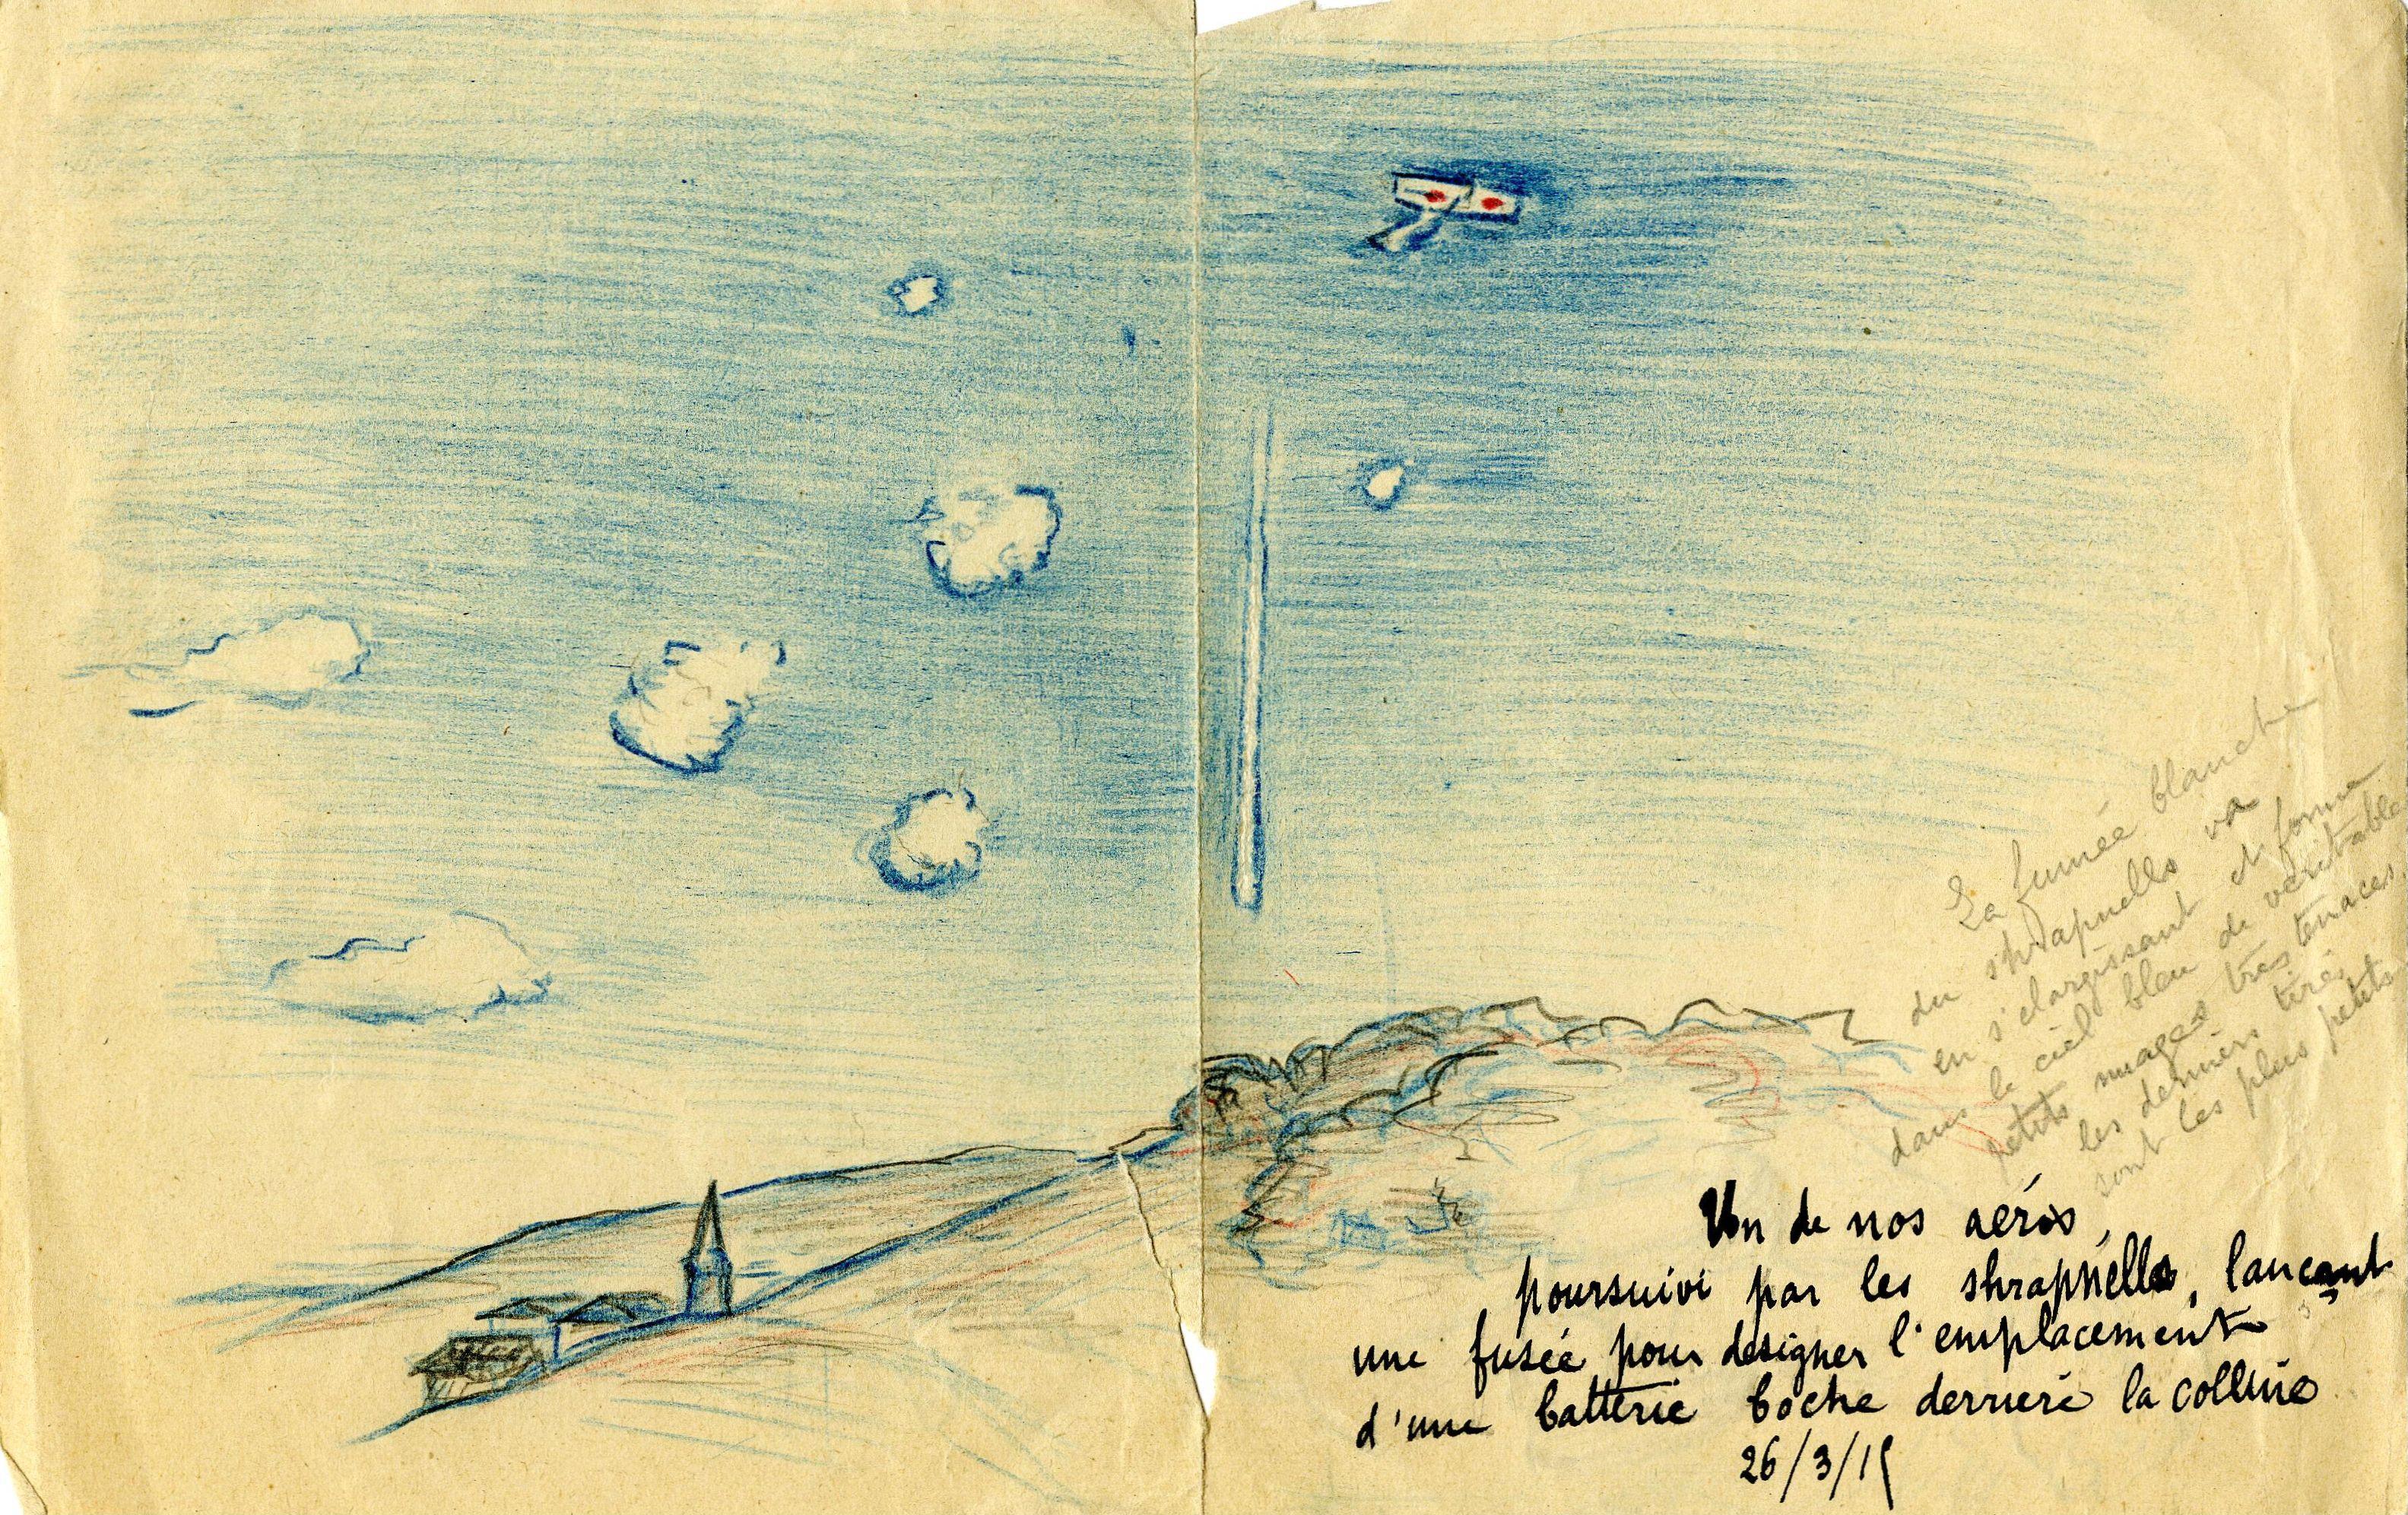 La fumée blanche
du shrapnells va
en s'elargissant et forme
dans le ciel bleu de veritable
petits nuages très tenaces,
les derniers tirés
sont les plus petits
Un de nos aéros,
poursuivi par les shrapnells, lançant
une fusée pour designer l'emplacement
d'une batterie boche derriere la colline
26/3/15